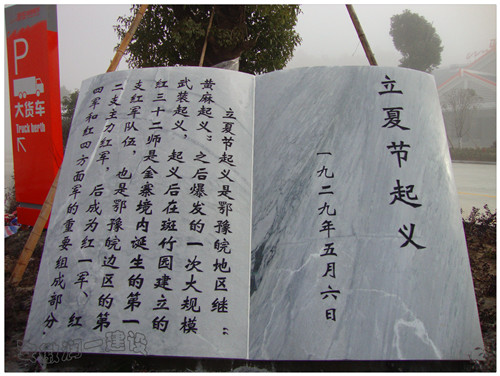 立夏节起义
一九二九年五月六日
立夏节起义是鄂豫皖地区继“
黄麻起义”之后爆发的一次大规模
武装起义，起义后在斑竹园建立的
红三十二师是金寨境内诞生的第一
支红军队伍，也是鄂豫皖边区的第
二支主力红军，后成为红一军、红
四军和红四方面军的重要组成部分
P
大货车
Truck berth